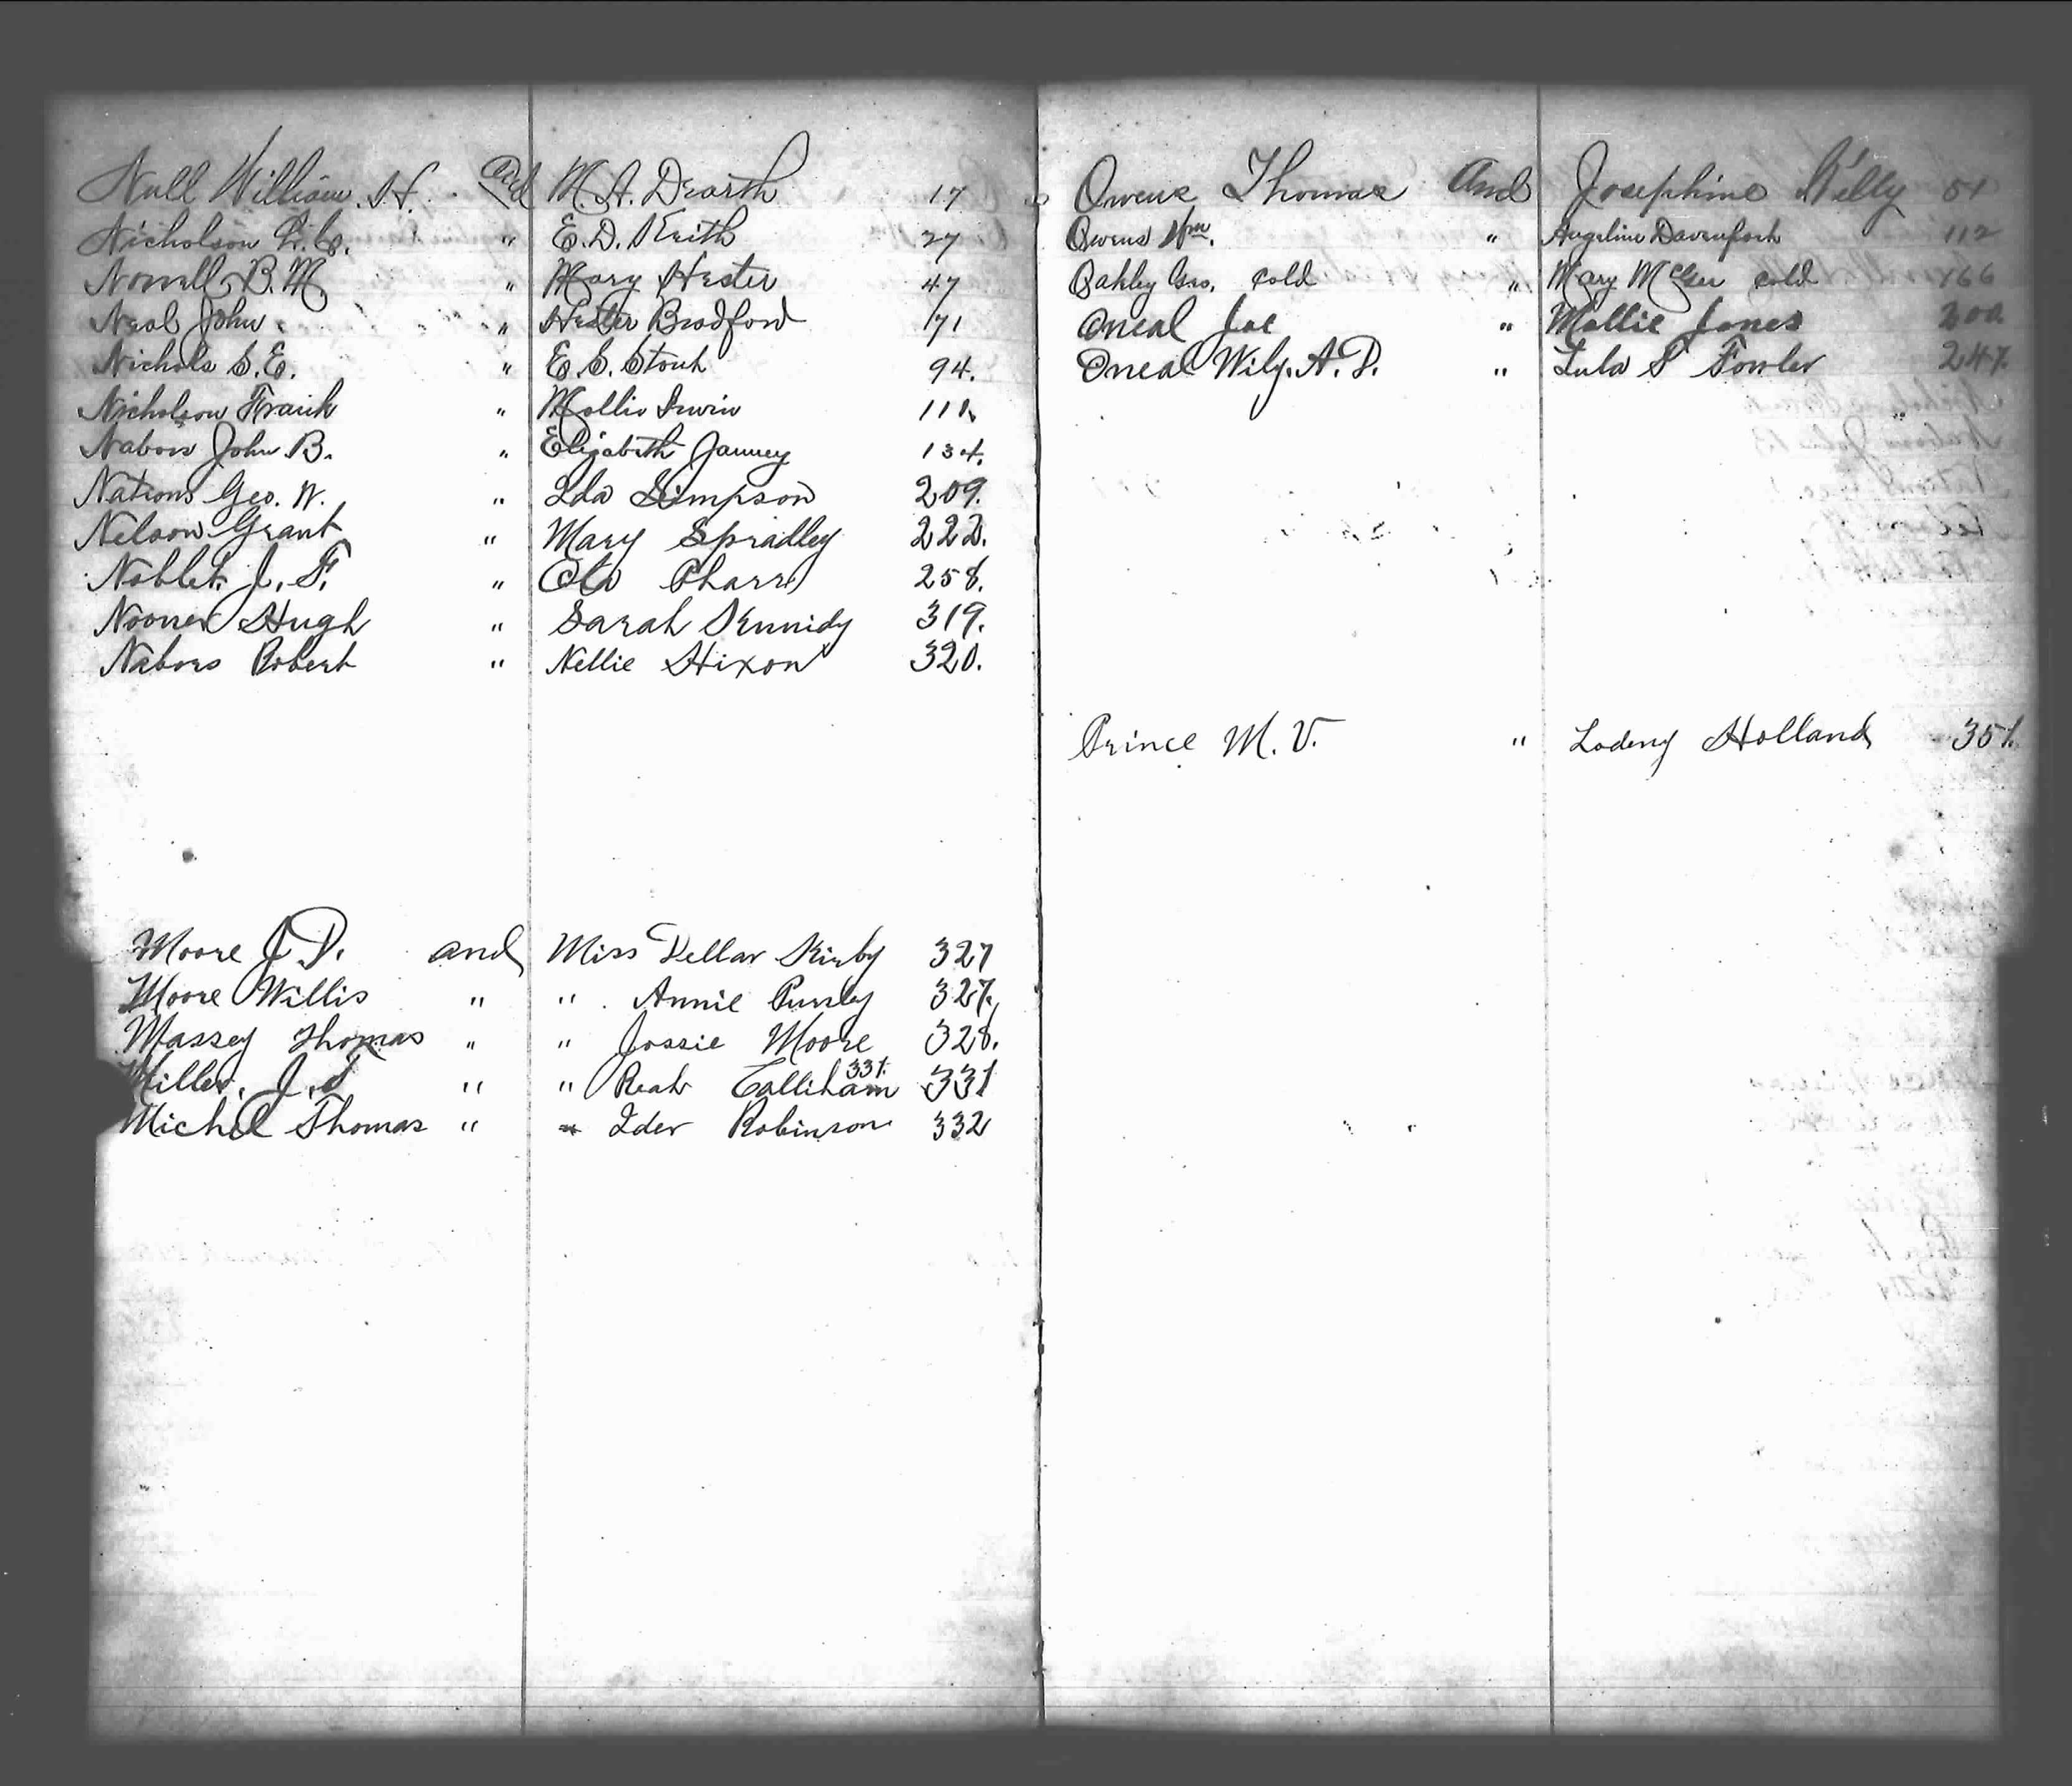 Null William H. And M. A. Dearth 17
Nicholson L. C. " E. D. Keith 27
Nowell B. M. " Mary Hester 47
Neal John " Hester Bradford 71
Nichols S. E. " E. S. Stout 94.
Nicholson Frank " Mollie Irwin 111.
Nabors John B. " Elizabeth Janney 134.
Nations Geo. W. " Ida Simpson 209.
Nelson Grant " Mary Spradley 222.
Noblet J. F. " Eta Pharr 258.
Nooner Hugh " Sarah Kennidy 319.
Nabors Robert " Nellie Hixon 320.
Moore J. D. and Miss Dellar Kirby 327
Moore Willis " " Annie Pursley 327.
Massey Thomas " " Jossie Moore 328.
Miller, J. T. " " Reah Calliham 331. 331
Michel Thomas " " Ider Robinson 332
Owens Thomas And Josephine Kelly 51
Owens Wm. " Angeline Davenport 112
Oakley Geo. Cold " Mary McGee Cold 166
Oneal Joe " Mollie Jones 200
Oneal Wily. A. D. " Lula S Fowler 247.
Prince M. V. " Lodeny Holland 351.